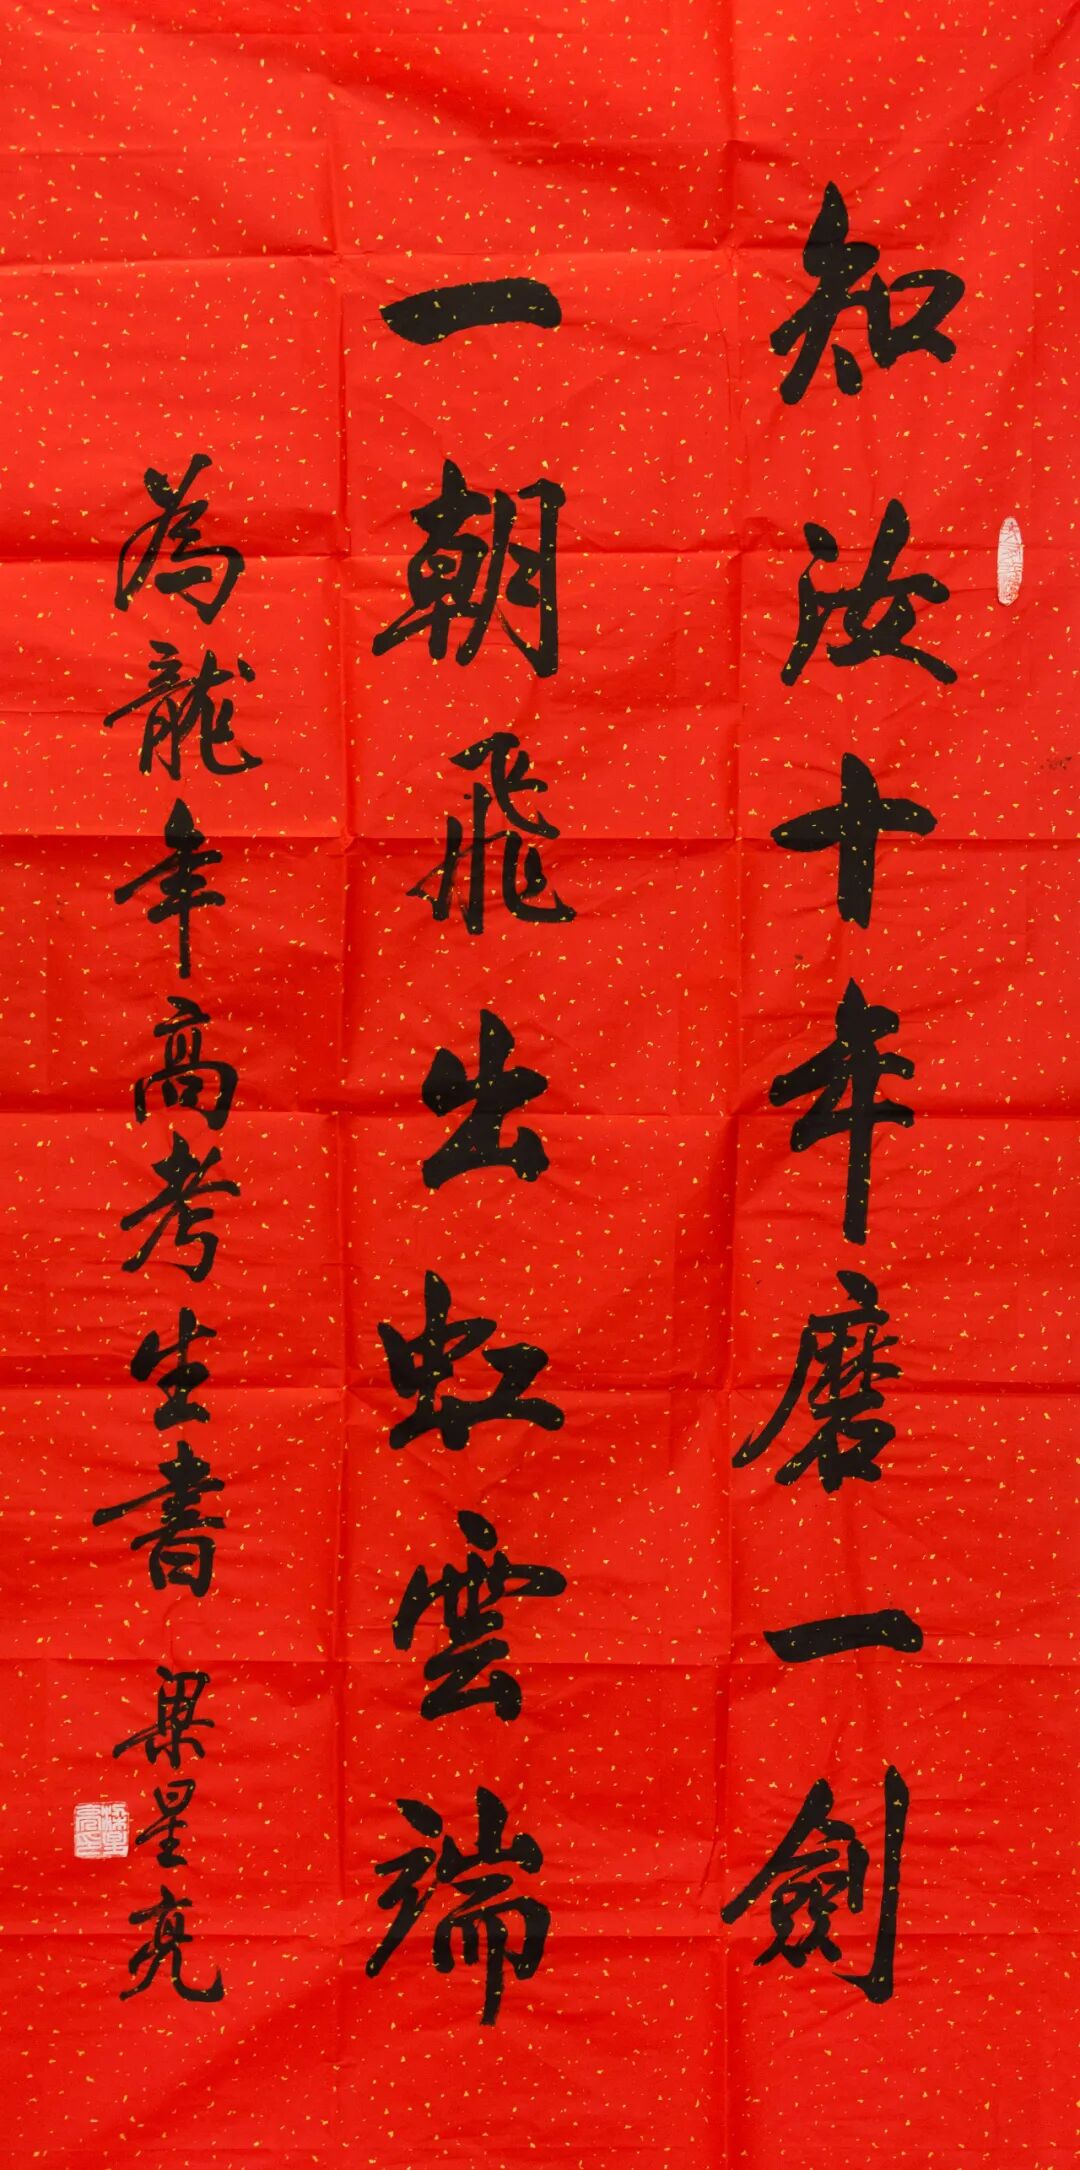 知汝十年磨一劍
一朝飛出虹雲端
為龍年高考生書 梁星亮